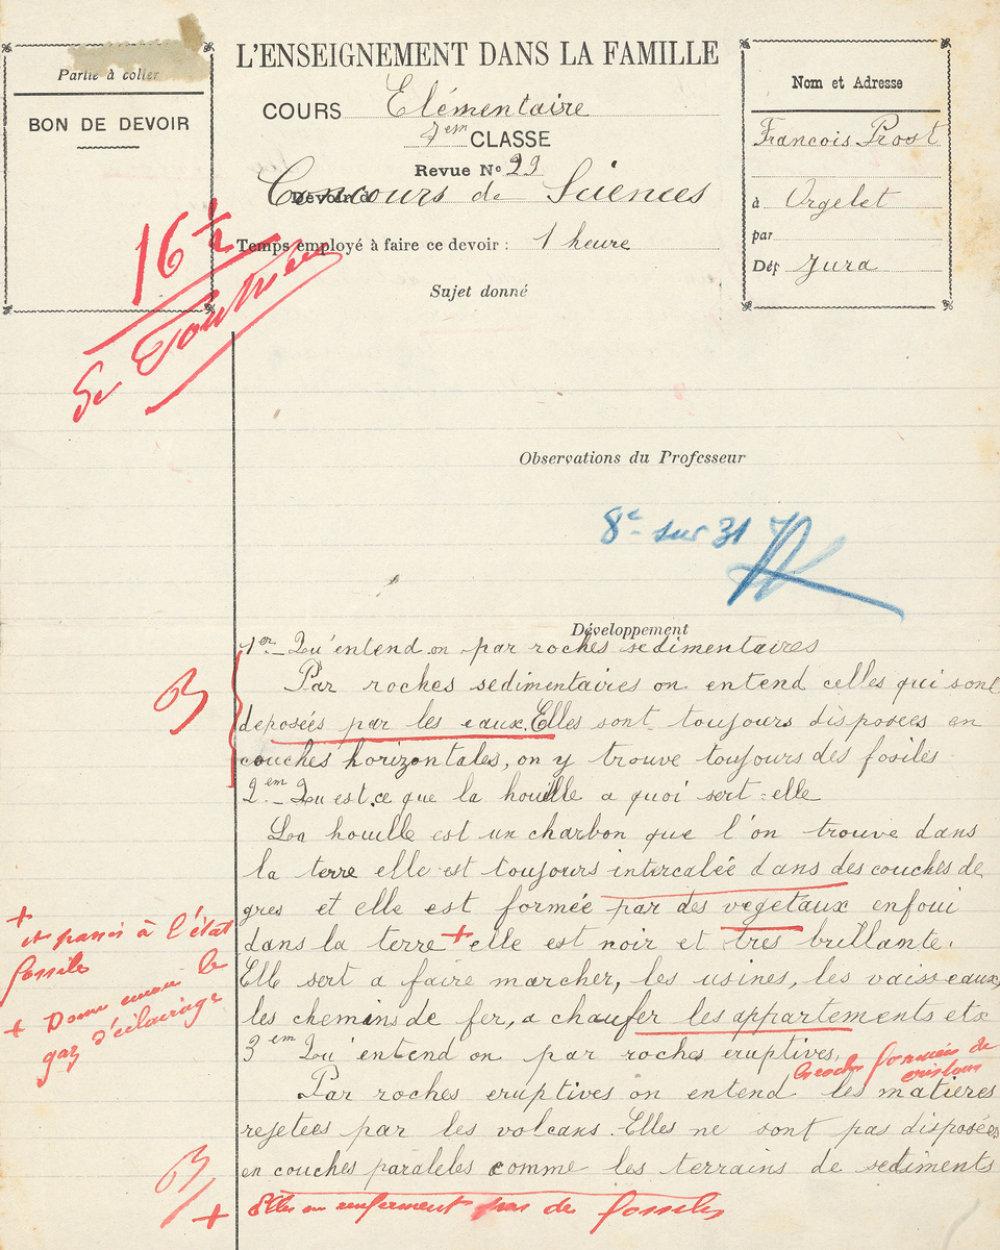 Partie à coller
BON DE DEVOIR
L'ENSEIGNEMENT DANS LA FAMILLE
COURS Elémentaire
7em CLASSE
Revue No 29
Concours de Sciences
Temps employé à faire ce devoir : 1 heure
Sujet donné
Nom et Adresse
Francois Prost
à Orgelet
par
Dép Jura
16 1/2
Observations du Professeur
8e sur 31
Développement
1er _ Qu'entend on par roches sedimentaires
Par roches sedimentaires on entend celles qui sont
deposées par les eaux. Elles sont toujours disposees en
couches horizontales, on y trouve toujours des fosiles
B
2em _ Qu est ce que la houille a quoi sert = elle
La houille est un charbon que l'on trouve dans
la terre elle est toujours intercalée dans des couches de
gres et elle est formée par des vegetaux enfoui
dans la terre + elle est noir et tres brillante.
+ et passés à l'état
fossile
Elle sert a faire marcher, les usines, les vaisseaux,
les chemins de fer, a chaufer les appartements etc
+ Donne encore le
gaz d'éclairage
3em Qu'entend on par roches eruptives.
Par roches eruptives on entend les matieres
rejetees par les volcans. Elles ne sont pas disposées
en couches paraleles comme les terrains de sediments
B
+ Elles ne renferment pas de fossiles